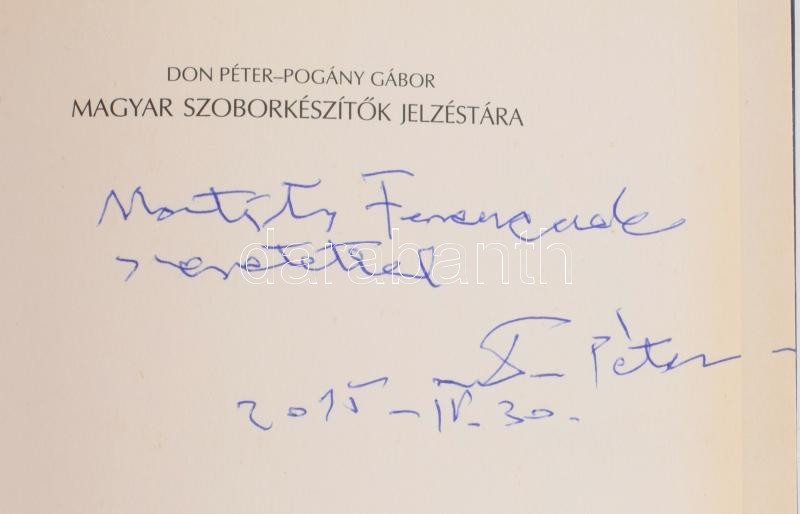 DON PÉTER–POGÁNY GÁBOR
MAGYAR SZOBORKÉSZÍTŐK JELZÉSTÁRA
Ferencnek
szeretettel
darabanth
Don Péter
2015-IV-30.